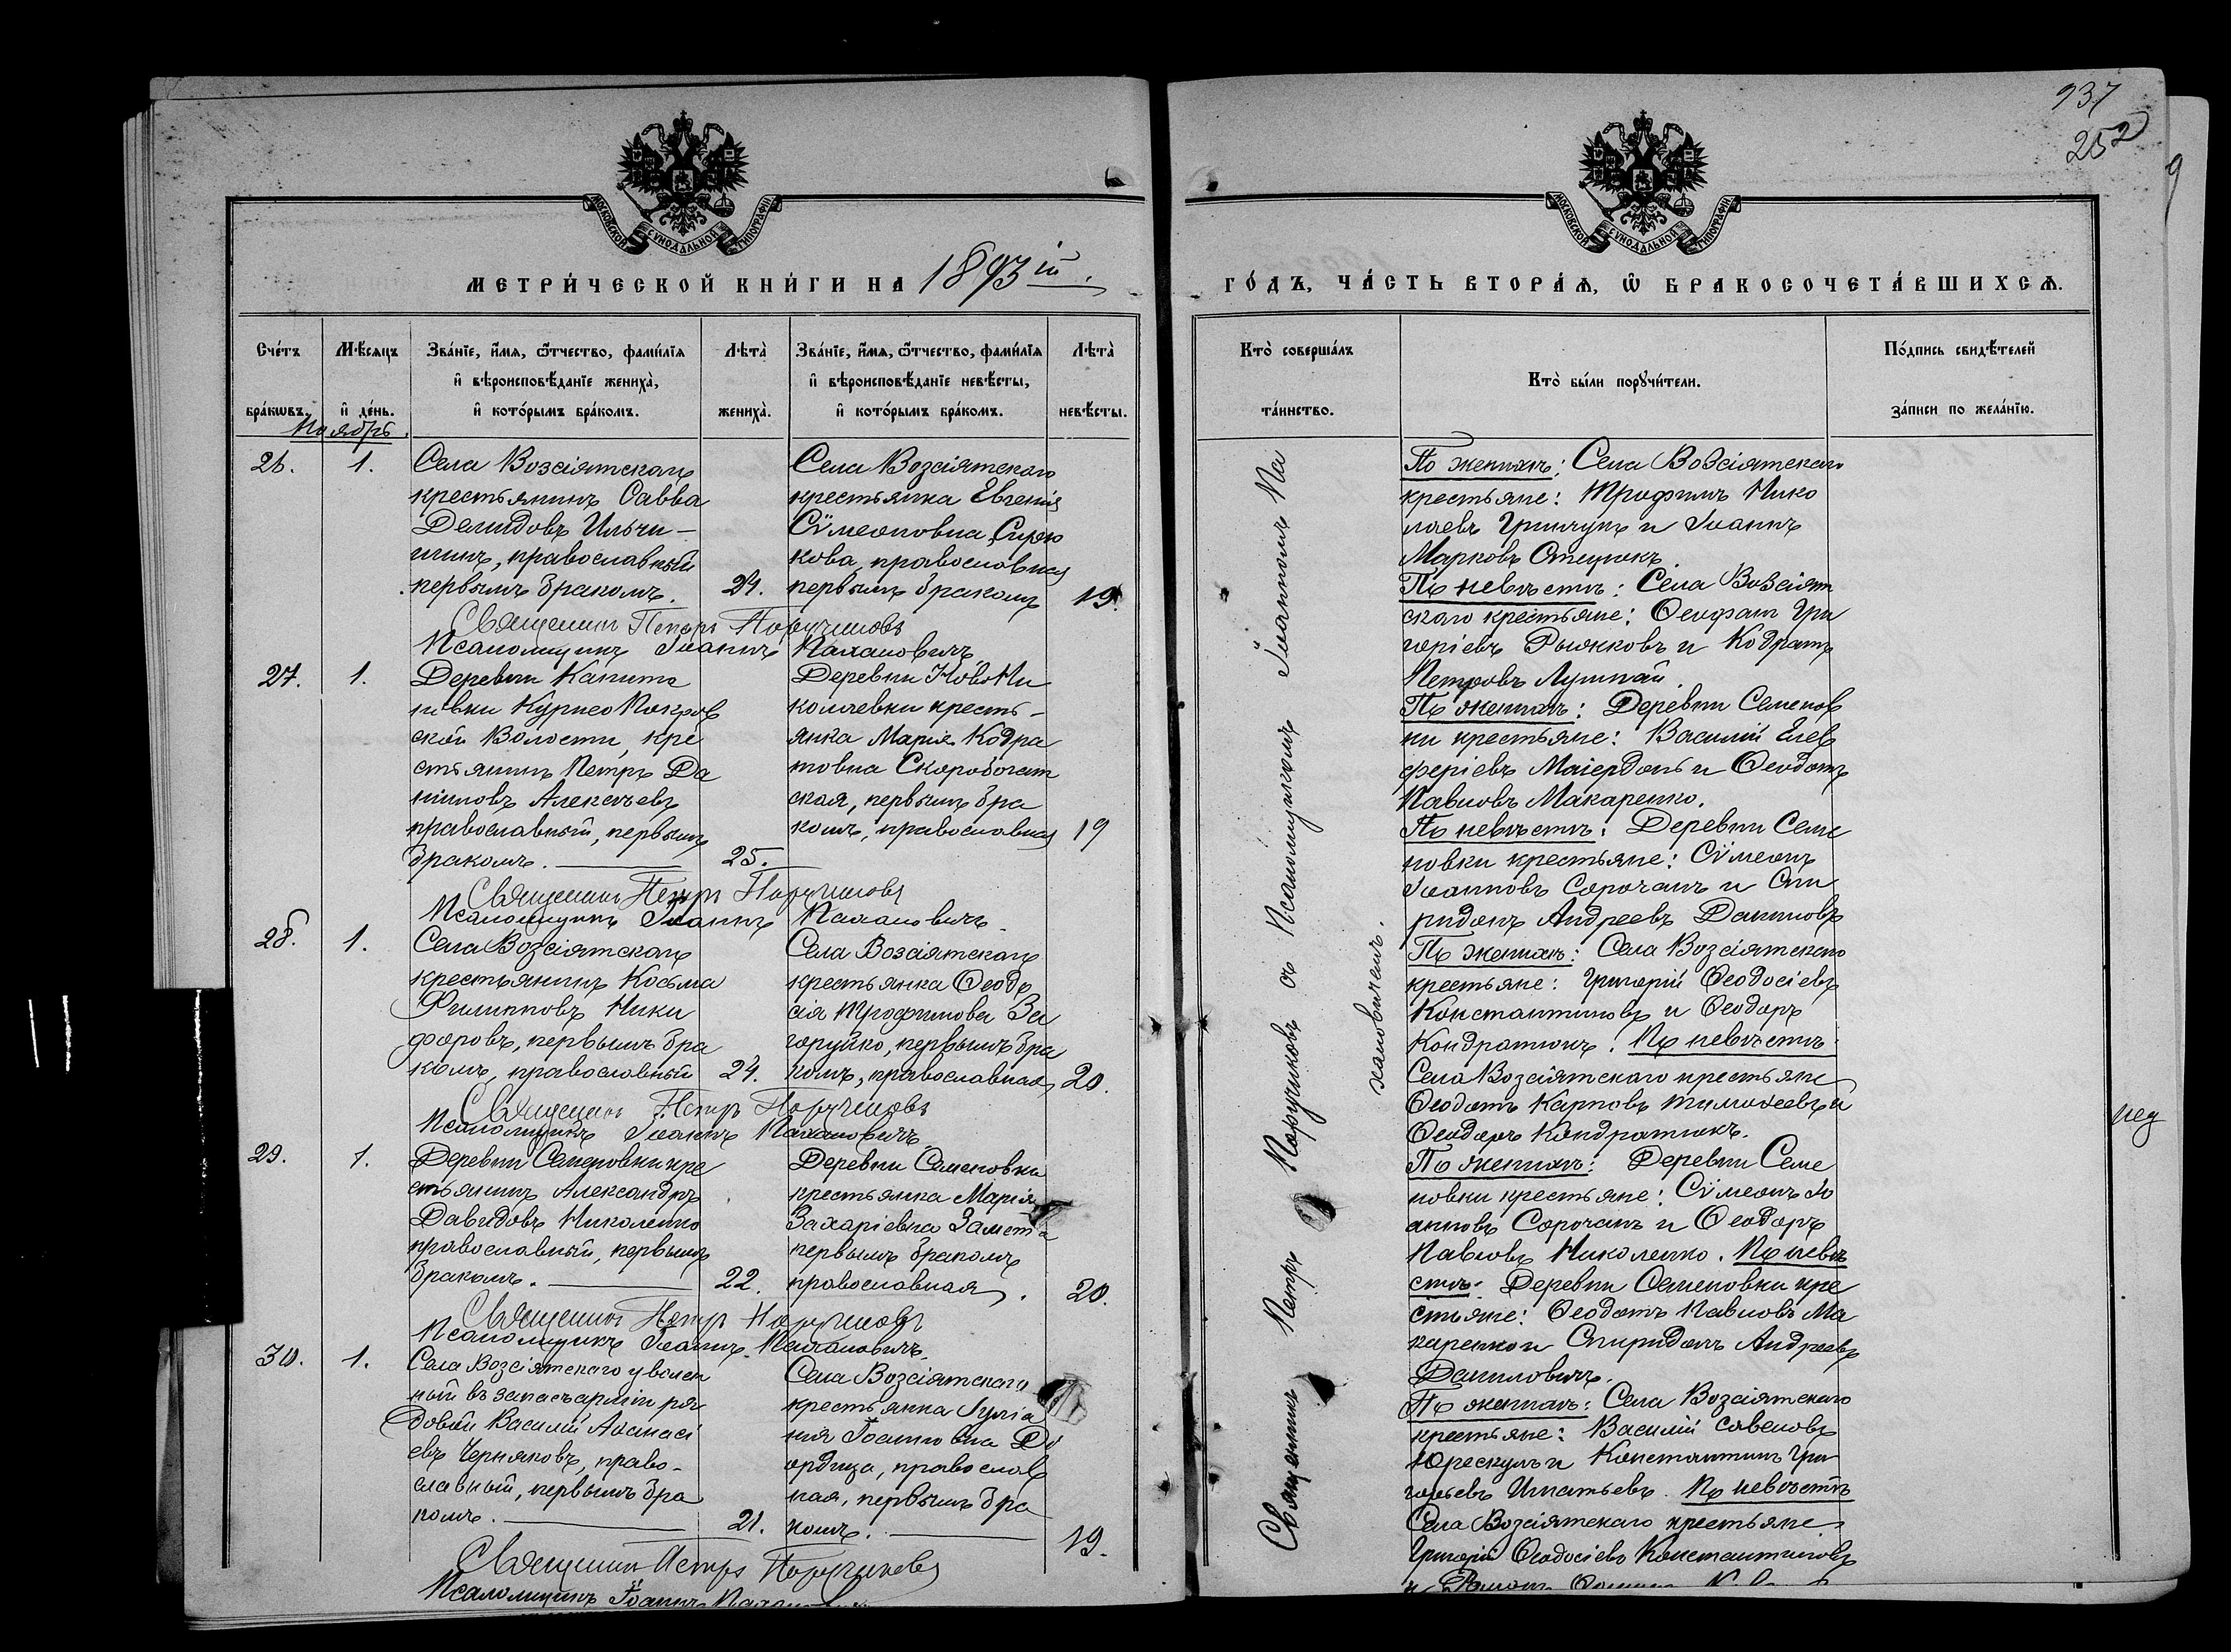 937
252
9
МОСКОВСКОЙ СУНОДАЛЬНОЙ ТИПОГРАФІИ
МЕТРИ́ЧЕСКОЙ КНИ́ГИ НА 1893 й.
Сче́тъ бра́кѡвъ.
Мѣ́сяцъ и҆ де́нь.
Зва́нїе, и҆́мя, ѻ҆́тчество, фамѝлїя
и҆ вѣроисповѣ́данїе жениха̀,
и҆ кото́рымъ бра́комъ.
Лѣта̀ жениха̀.
Зва́нїе, и҆́мя, ѻ҆́тчество, фамѝлїя
и҆ вѣроисповѣ́данїе невѣ́сты,
и҆ кото́рымъ бра́комъ.
Лѣта̀ невѣ́сты.
Ноябрь.
26. 1.
Села Возсіятскаго
крестьянинъ Савва
Демидовъ Ильчи-
шинъ, православный
первымъ бракомъ. 24.
Села Возсіятскаго
крестьянка Евгенія
Сѵмеоновна Сирю
кова, православная
первымъ бракомъ 19.
Священникъ Петръ Поручиковъ
Псаломщикъ Іоаннъ Палановичъ
27. 1.
Деревни Капита
новки Куриео Покров
ской Волости, кре
стьянинъ Петръ Да
ніиловъ Алексѣевъ
православный, первымъ
бракомъ. 25.
Деревни НовоНи
колаевки кресть-
янка Марія Кодра
товна Скоробогат
ская, первымъ бра
комъ, православная 19
Священникъ Петръ Поручиковъ
Псаломщикъ Іоаннъ Палановичъ
28. 1.
Села Возсіятскаго
крестьянинъ Косьма
Филипповъ Ники
форовъ, первымъ бра
комъ, православный 24.
Села Возсіятскаго
крестьянка Ѳеодо
сія Трофимова За
горуйко, первымъ бра
комъ, православная 20.
Священникъ Петръ Поручиковъ
Псаломщикъ Іоаннъ Палановичъ
29. 1.
Деревни Семеновки кре
стьянинъ Александръ
Давидовъ Николенко
православный, первымъ
бракомъ. 22.
Деревни Семеновки
крестьянка Марія
Захаріевна Замета
первымъ бракомъ
православная. 20.
Священникъ Петръ Поручиковъ
Псаломщикъ Іоаннъ Палановичъ
30. 1.
Села Возсіятскаго уволен
ный въ запасъ арміи ря
довой Василій Аѳанасі
евъ Черняковъ, право-
славный, первымъ бра
комъ. 21.
Села Возсіятскаго
крестьянка Іуліа
нія Іоанновна
ордица, православ
ная, первымъ бра
комъ. 19.
Священникъ Петръ Поручиковъ
Псаломщикъ Іоаннъ
МОСКОВСКОЙ СУНОДАЛЬНОЙ ТИПОГРАФІИ
ГО́ДЪ, ЧА́СТЬ ВТОРА́Ѧ, Ѽ БРАКОСОЧЕТА́ВШИХСѦ.
Кто̀ соверша́лъ та́инство.
Кто̀ бы́ли порꙋчи́тели.
По́дпись свидѣ́телей за́писи по жела́нїю.
Священникъ Петръ Поручиковъ съ Псаломщикомъ Іоанномъ Па
лановичемъ.
По женихѣ: Села Возсіятскаго
крестьяне: Трофимъ Нико
лаевъ Гринчукъ и Іоаннъ
Марковъ Стецюкъ.
По невѣстѣ: Села Возсіят
скаго крестьяне: Ѳеофанъ Гри
горіевъ Рыжковъ и Кодратъ
Петровъ Лупай.
По женихѣ: Деревни Семенов
ки крестьяне: Василій Елев
феріевъ Маіерданъ и Ѳеодотъ
Павловъ Макаренко.
По невѣстѣ: Деревни Семе
новки крестьяне: Сѵмеонъ
Іоанновъ Сорочанъ и Спи
ридонъ Андреевъ Даниловъ
По женихѣ: Села Возсіятскаго
крестьяне: Григорій Ѳеодосіевъ
Константиновъ и Ѳеодоръ
Кондратюкъ. По невѣстѣ:
Села Возсіятскаго крестьяне
Ѳеодотъ Карповъ Тимоѳеевъ и
Ѳеодоръ Кондратюкъ.
По женихѣ: Деревни Семе
новки крестьяне: Сѵмеонъ Іо
анновъ Сорочанъ и Ѳеодоръ
Павловъ Николенко. По невѣ
стѣ: Деревни Семеновки кре
стьяне: Ѳеодотъ Павловъ Ма
каренко и Спиридонъ Андреевъ
Даниловичъ.
По женихѣ: Села Возсіятскаго
крестьяне: Василій Савеловъ
Юрескулъ и Константинъ Гри
горьевъ Игнатьевъ. По невѣстѣ
Села Возсіятскаго крестьяне
Григорій Ѳеодосіевъ Константиновъ
и Романъ